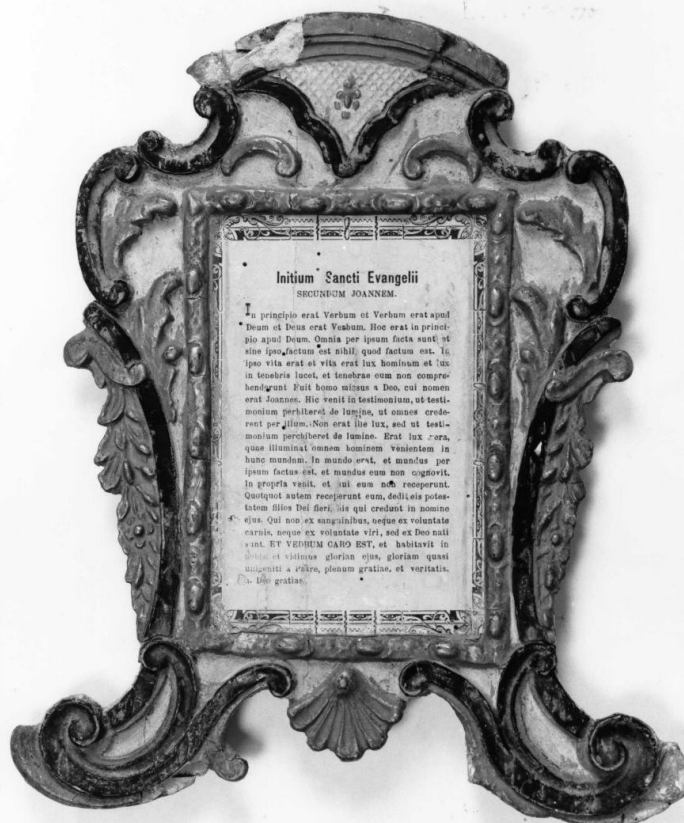 Initium Sancti Evangelii
SECUNDUM JOANNEM.
In principio erat Verbum et Verbum erat apud
Deum et Deus erat Verbum. Hoc erat in princi-
pio apud Deum. Omnia per ipsum facta sunt et
sine ipso factum est nihil, quod factum est. In
ipso vita erat et vita erat lux hominum et lux
in tenebris lucet, et tenebrae eum non compre-
henderunt Fuit homo missus a Deo, cui nomen
erat Joannes. Hic venit in testimonium, ut testi-
monium perhiberet de lumine, ut omnes crede-
rent per illum. Non erat ille lux, sed ut testi-
monium perchiberet de lumine. Erat lux vera,
quae illuminat omnem hominem venientem in
hunc mundum. In mundo erat, et mundus per
ipsum factus est, et mundus eum non cognovit.
In propria venit, et sui eum non receperunt.
Quotquot autem receperunt eum, dedit eis potes-
tatem filios Dei fieri, his qui credunt in nomine
ejus. Qui non ex sanguinibus, neque ex voluntate
carnis, neque ex voluntate viri, sed ex Deo nati
sunt. ET VEDBUM CARO EST, et habitavit in
nobis et vidimus glorian ejus, gloriam quasi
unigeniti a Patre, plenum gratiae, et veritatis.
Deo gratias